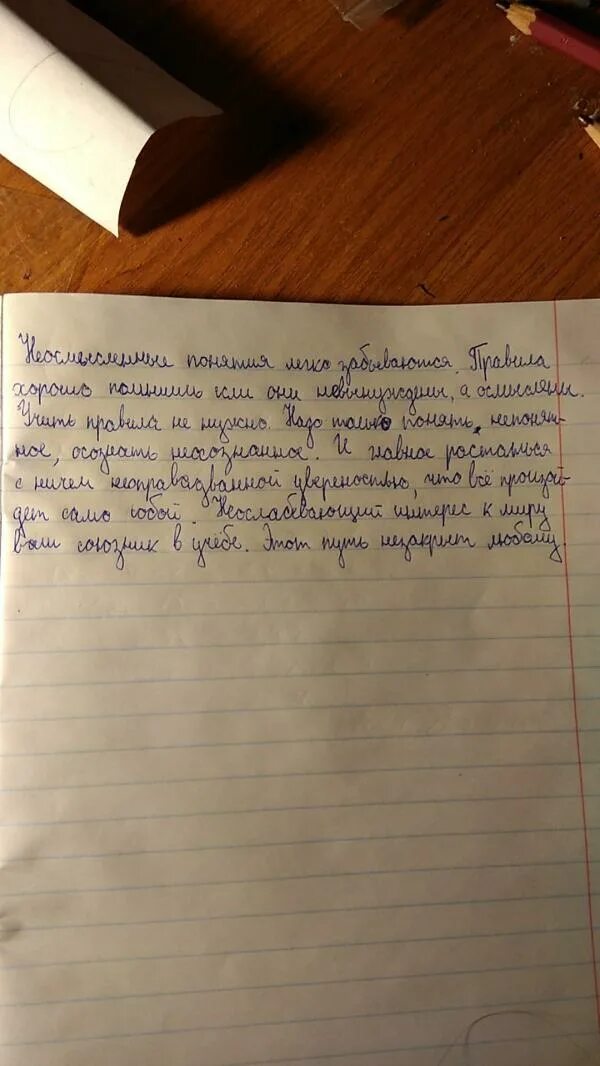 Неосмысленные понятия легко забываются. Правила
хорошо помнишь если они невынуждены, а осмысляни.
Учить правила не нужно. Надо только понять, непонят-
ное, осознать неосознанное. И главное росташься
с ничем неоправадванной увереностью, что всё произай-
дет само собой. Неослабевающий интерес к миру
ваш союзник в учёбе. Этот путь незакрыт любому.